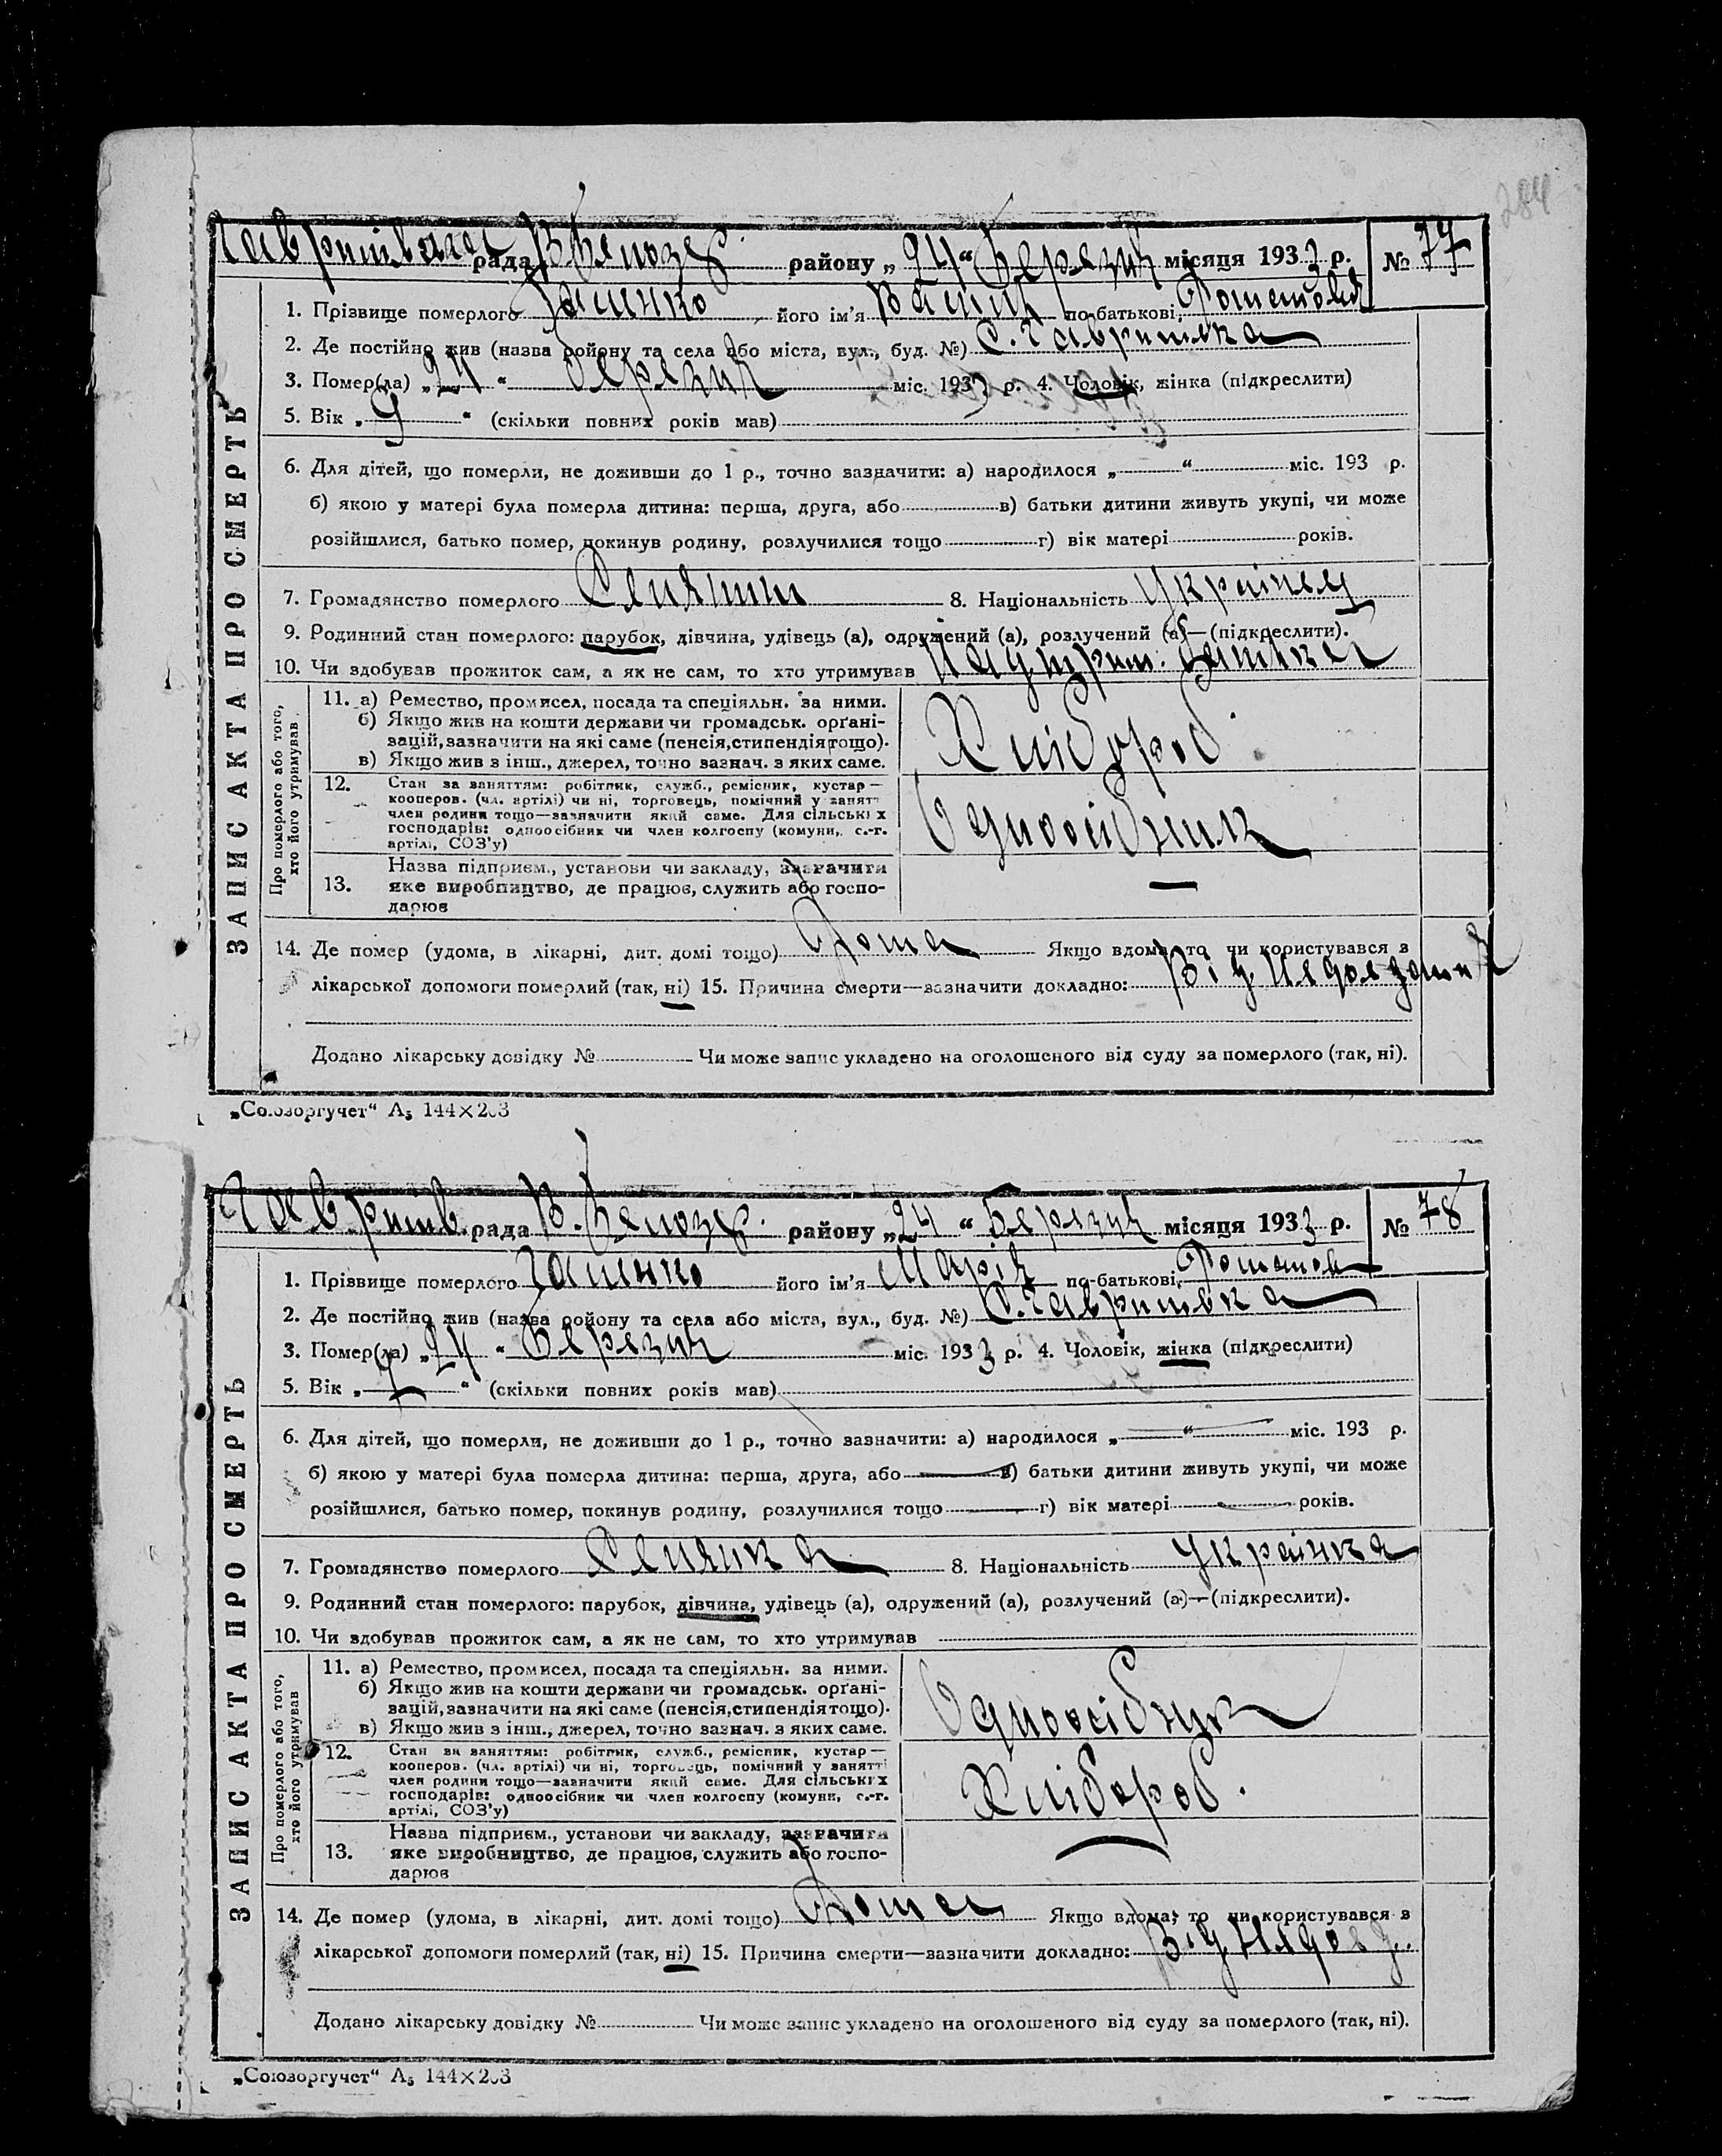 284
рада В. Білозер. району „24“ березня місяця 1933 р. № 77
1. Прізвище померлого його ім'я по батькові
2. Де постійно жив (назва ройону та села або міста, вул., буд. №) с. Гавришівка
3. Помер(ла) „24“ березня міс. 1933 р. 4. Чоловік, жінка (підкреслити)
5. Вік „9“ (скільки повних років мав)
6. Для дітей, що померли, не доживши до 1 р., точно зазначити: а) народилося „ “ міс. 193 р.
б) якою у матері була померла дитина: перша, друга, або в) батьки дитини живуть укупі, чи може
розійшлися, батько помер, покинув родину, розлучилися тощо г) вік матері років.
7. Громадянство померлого Селянин 8. Національність Українець
9. Родинний стан померлого: парубок, дівчина, удівець (а), одружений (а), розлучений (а)—(підкреслити).
10. Чи здобував прожиток сам, а як не сам, то хто утримував батька
Про померлого або того,
хто його утримував
11. а) Ремество, промисел, посада та спеціяльн. за ними.
б) Якщо жив на кошти держави чи громадськ. орґані-
зацій, зазначити на які саме (пенсія, стипендія тощо).
в) Якщо жив з інш., джерел, точно зазнач. з яких саме.
Хлібороб
12. Стан за заняттям: робітник, служб., ремісник, кустар—
кооперов. (чл. артілі) чи ні, торговець, помічний у занятт
член родини тощо—зазначити який саме. Для сільських
господарів: одноосібник чи член колгоспу (комуни, с.-г.
артілі, СОЗ'у)
Одноосібник
13. Назва підприєм., установи чи закладу, зазначити
яке виробництво, де працює, служить або госпо-
дарює
—
14. Де помер (удома, в лікарні, дит. домі тощо) Дома Якщо вдома, то чи користувався з
лікарської допомоги померлий (так, ні) 15. Причина смерти—зазначити докладно: Від недоїдання
Додано лікарську довідку № Чи може запис укладено на оголошеного від суду за померлого (так, ні).
ЗАПИС АКТА ПРО СМЕРТЬ
„Союзоргучет“ А₅ 144×203
Гавришів. рада В. Білозер. району „24“ Березня місяця 1933 р. № 78
1. Прізвище померлого його ім'я Марія по батькові
2. Де постійно жив (назва ройону та села або міста, вул., буд. №) с. Гавришівка
3. Помер(ла) „24“ Березня міс. 1933 р. 4. Чоловік, жінка (підкреслити)
5. Вік „7“ (скільки повних років мав)
6. Для дітей, що померли, не доживши до 1 р., точно зазначити: а) народилося „—“ міс. 193 р.
б) якою у матері була померла дитина: перша, друга, або — в) батьки дитини живуть укупі, чи може
розійшлися, батько помер, покинув родину, розлучилися тощо — г) вік матері — років.
7. Громадянство померлого Селянка 8. Національність Українка
9. Родинний стан померлого: парубок, дівчина, удівець (а), одружений (а), розлучений (а)—(підкреслити).
10. Чи здобував прожиток сам, а як не сам, то хто утримував
Про померлого або того,
хто його утримував
11. а) Ремество, промисел, посада та спеціяльн. за ними.
б) Якщо жив на кошти держави чи громадськ. орґані-
зацій, зазначити на які саме (пенсія, стипендія тощо).
в) Якщо жив з інш., джерел, точно зазнач. з яких саме.
Одноосібник
12. Стан за заняттям: робітник, служб., ремісник, кустар—
кооперов. (чл. артілі) чи ні, торговець, помічний у занятті
член родини тощо—зазначити який саме. Для сільських
господарів: одноосібник чи член колгоспу (комуни, с.-г.
артілі, СОЗ'у)
Хлібороб.
13. Назва підприєм., установи чи закладу, зазначити
яке виробництво, де працює, служить або госпо-
дарює
—
14. Де помер (удома, в лікарні, дит. домі тощо) Дома Якщо вдома, то чи користувався з
лікарської допомоги померлий (так, ні) 15. Причина смерти—зазначити докладно: Від недоїд..
Додано лікарську довідку № Чи може запис укладено на оголошеного від суду за померлого (так, ні).
ЗАПИС АКТА ПРО СМЕРТЬ
„Союзоргучет“ А₅ 144×203